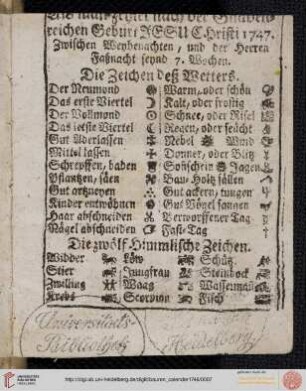 reichen Geburt JESU Christi 1747.
Zwischen Weyhenachten, und der Herren
Faßnacht seynd 7. Wochen.
Die Zeichen deß Wetters.
Der Neumond Warm, oder schön
Das erste Viertel Kalt, oder frostig
Der Vollmond Schnee, oder Risel
Das letste Viertel Regen, oder feücht
Gut Aderlassen Nebel Wind
Mittel lassen Donner, oder Blitz
Schrepffen, baden Sonschein Jagen
Pflantzen, säen Bau-Holtz fällen
Gut artzneyen Gut ackern, tungen
Kinder entwöhnen Gut Vögel fangen
Haar abschneiden Verworffener Tag
Nägel abschneiden Fast-Tag
Die zwölf Himmlische Zeichen.
Widder Löw Schütz
Stier Jungfrau Steinbock
Zwilling Waag Wasserman
Krebs Scorpion Fisch
Universitäts-
Bibliothek
Heidelberg